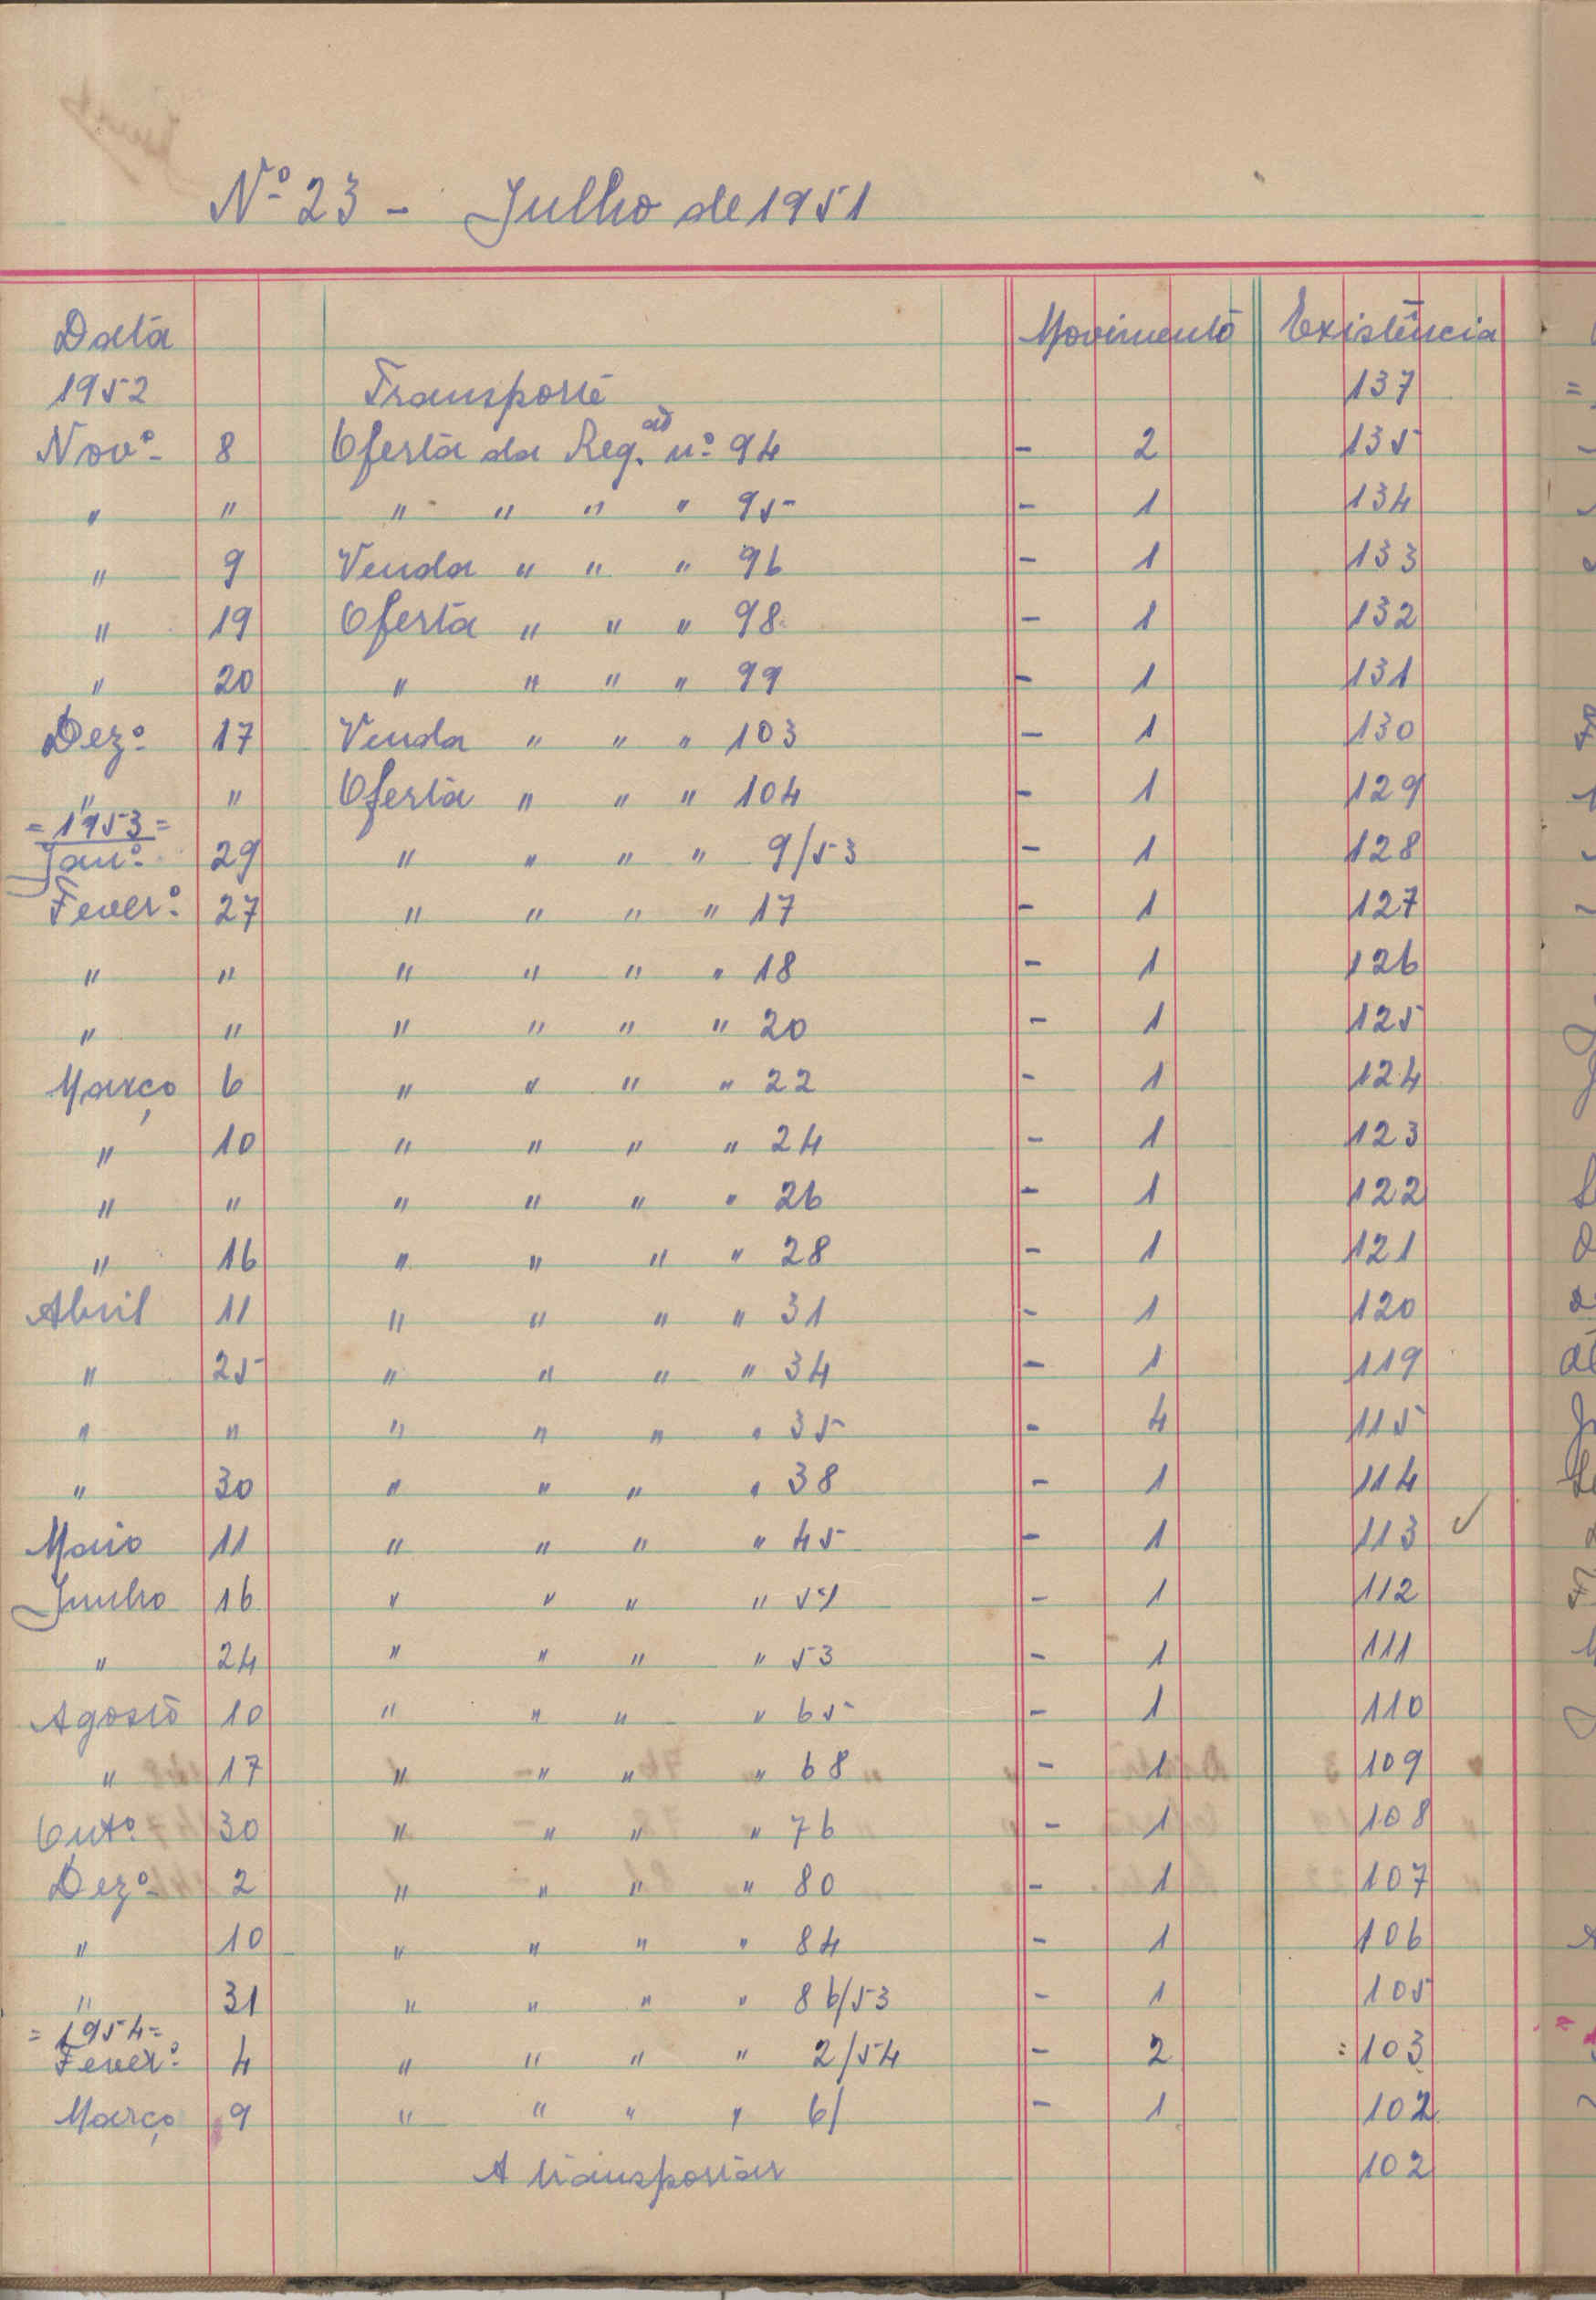 Nº 23 - Julho de 1951
Data Movimento Existência
1952 Transporte 137
Novº 8 Oferta da Reg. ao nº 94 - 2 135
" " " " " " 95 - 1 134
" 9 Venda " " " 96 - 1 133
" 19 Oferta " " " 98 - 1 132
" 20 " " " " 99 - 1 131
Dezº 17 Venda " " " 103 - 1 130
" " Oferta " " " 104 - 1 129
= 1953 =
Janº 29 " " " " 9/53 - 1 128
Feverº 27 " " " " 17 - 1 127
" " " " " " 18 - 1 126
" " " " " " 20 - 1 125
Março 6 " " " " 22 - 1 124
" 10 " " " " 24 - 1 123
" " " " " " 26 - 1 122
" 16 " " " " 28 - 1 121
Abril 11 " " " " 31 - 1 120
" 25 " " " " 34 - 1 119
" " " " " " 35 - 4 115
" 30 " " " " 38 - 1 114
Maio 11 " " " " 45 - 1 113 ✓
Junho 16 " " " " - 1 112
" 24 " " " " 53 - 1 111
Agosto 10 " " " " 65 - 1 110
" 17 " " " " 68 - 1 109
Outº 30 " " " " 76 - 1 108
Dezº 2 " " " " 80 - 1 107
" 10 " " " " 84 - 1 106
" 31 " " " " 86/53 - 1 105
= 1954 =
Feverº 4 " " " " 2/54 - 2 : 103
Março 9 " " " " 6/ - 1 102
A transportar 102